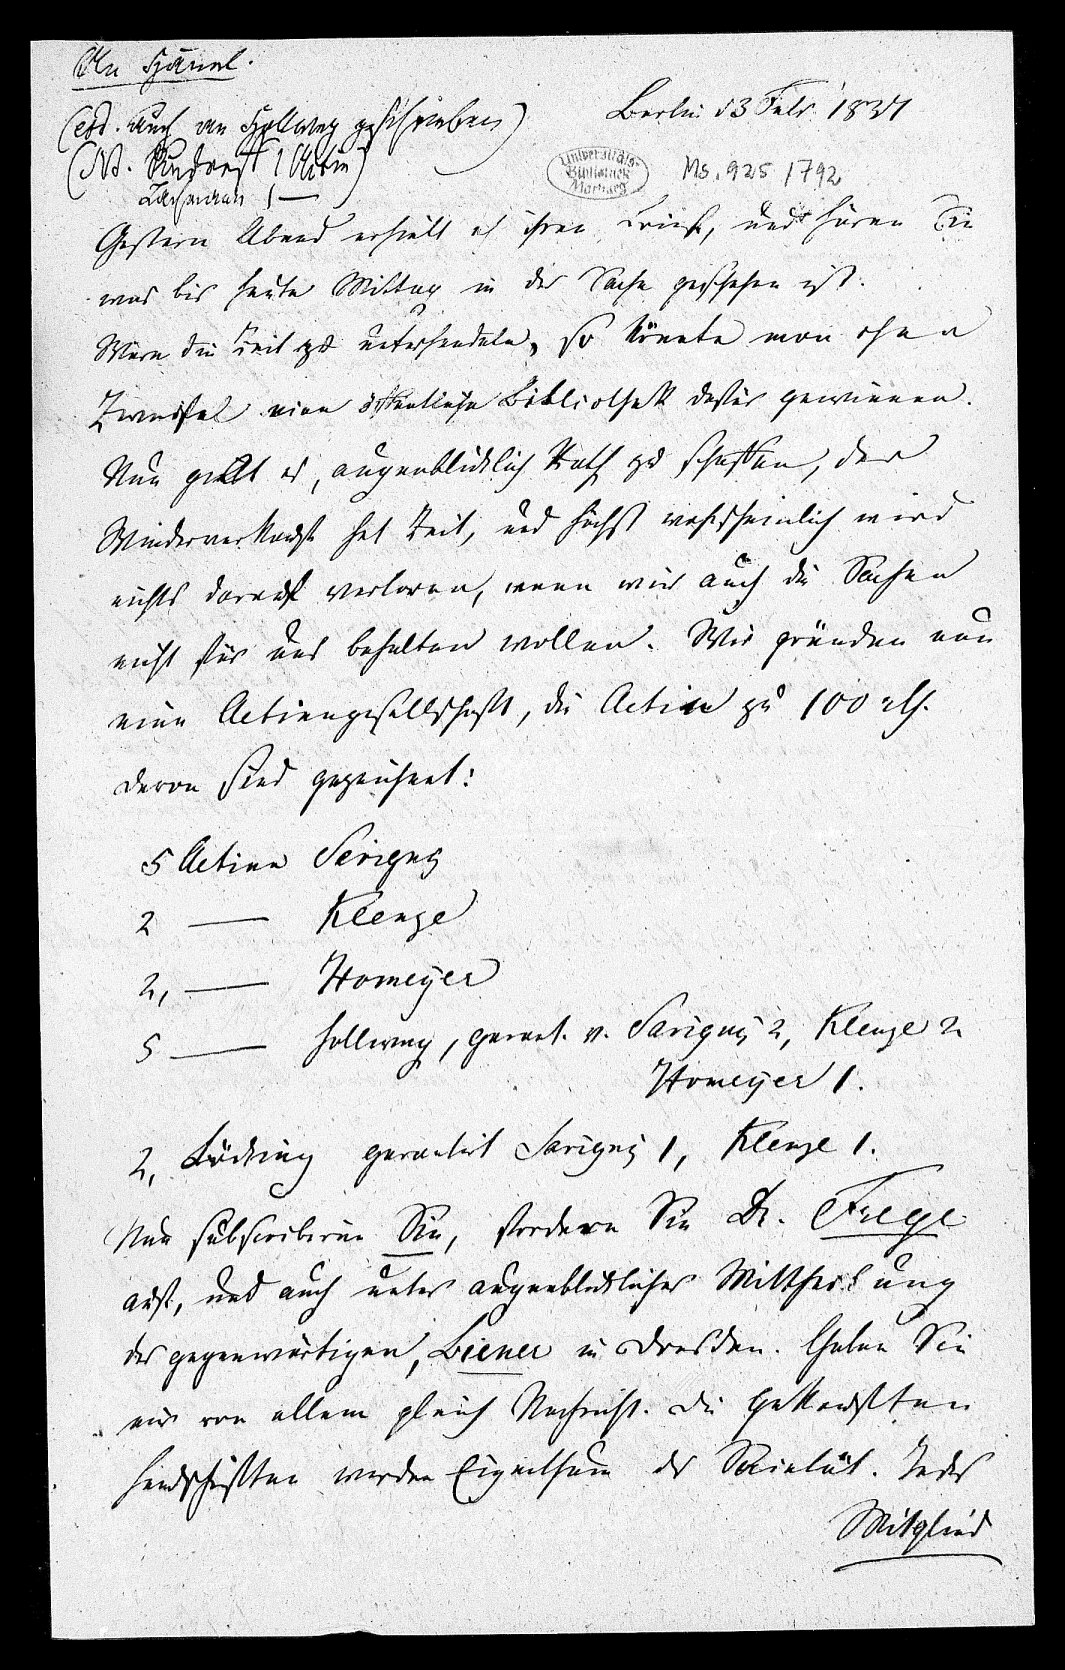 An Hänel.
Berlin 13 Febr. 1837
(ebd. auch an Hollweg geschrieben)
(NB. Rudorff 1 Actie)
Lachmann 1 —
Universitäts-
Bibliothek
Marburg
Ms. 925/1792
Gestern Abend erhielt ich Ihren Brief, und hören Sie
was bis heute Mittag in der Sache geschehen ist.
Wäre die Zeit zu unterhandeln, so könnte man ohne
Zweifel eine öffentliche Bibliothek dafür gewinnen.
Nun gilt es, augenblicklich Rath zu schaffen, der
Wiederverkauf hat Zeit, und höchst wahrscheinlich wird
nichts darauf verloren, wenn wir auch die Sachen
nicht für uns behalten wollen. Wir gründen nun
eine Actiengesellschaft, die Actie zu 100 rth.
Davon sind gezeichnet:
5 Actien Savigny
2 — Klenze
2, — Homeyer
5 — Hollweg, garant. v. Savigny 2, Klenze 2
Homeyer 1.
2, Böcking garantirt Savigny 1, Klenze 1.
Nun subscribiren Sie, fordern Sie Dr. Frege
auf, und auch unter augenblicklicher Mittheilung
des gegenwärtigen, Biener in Dresden. Geben Sie
mir von allem gleich Nachricht. Die gekauften
Handschriften werden Eigenthum der Societät. Jedes
Mitglied